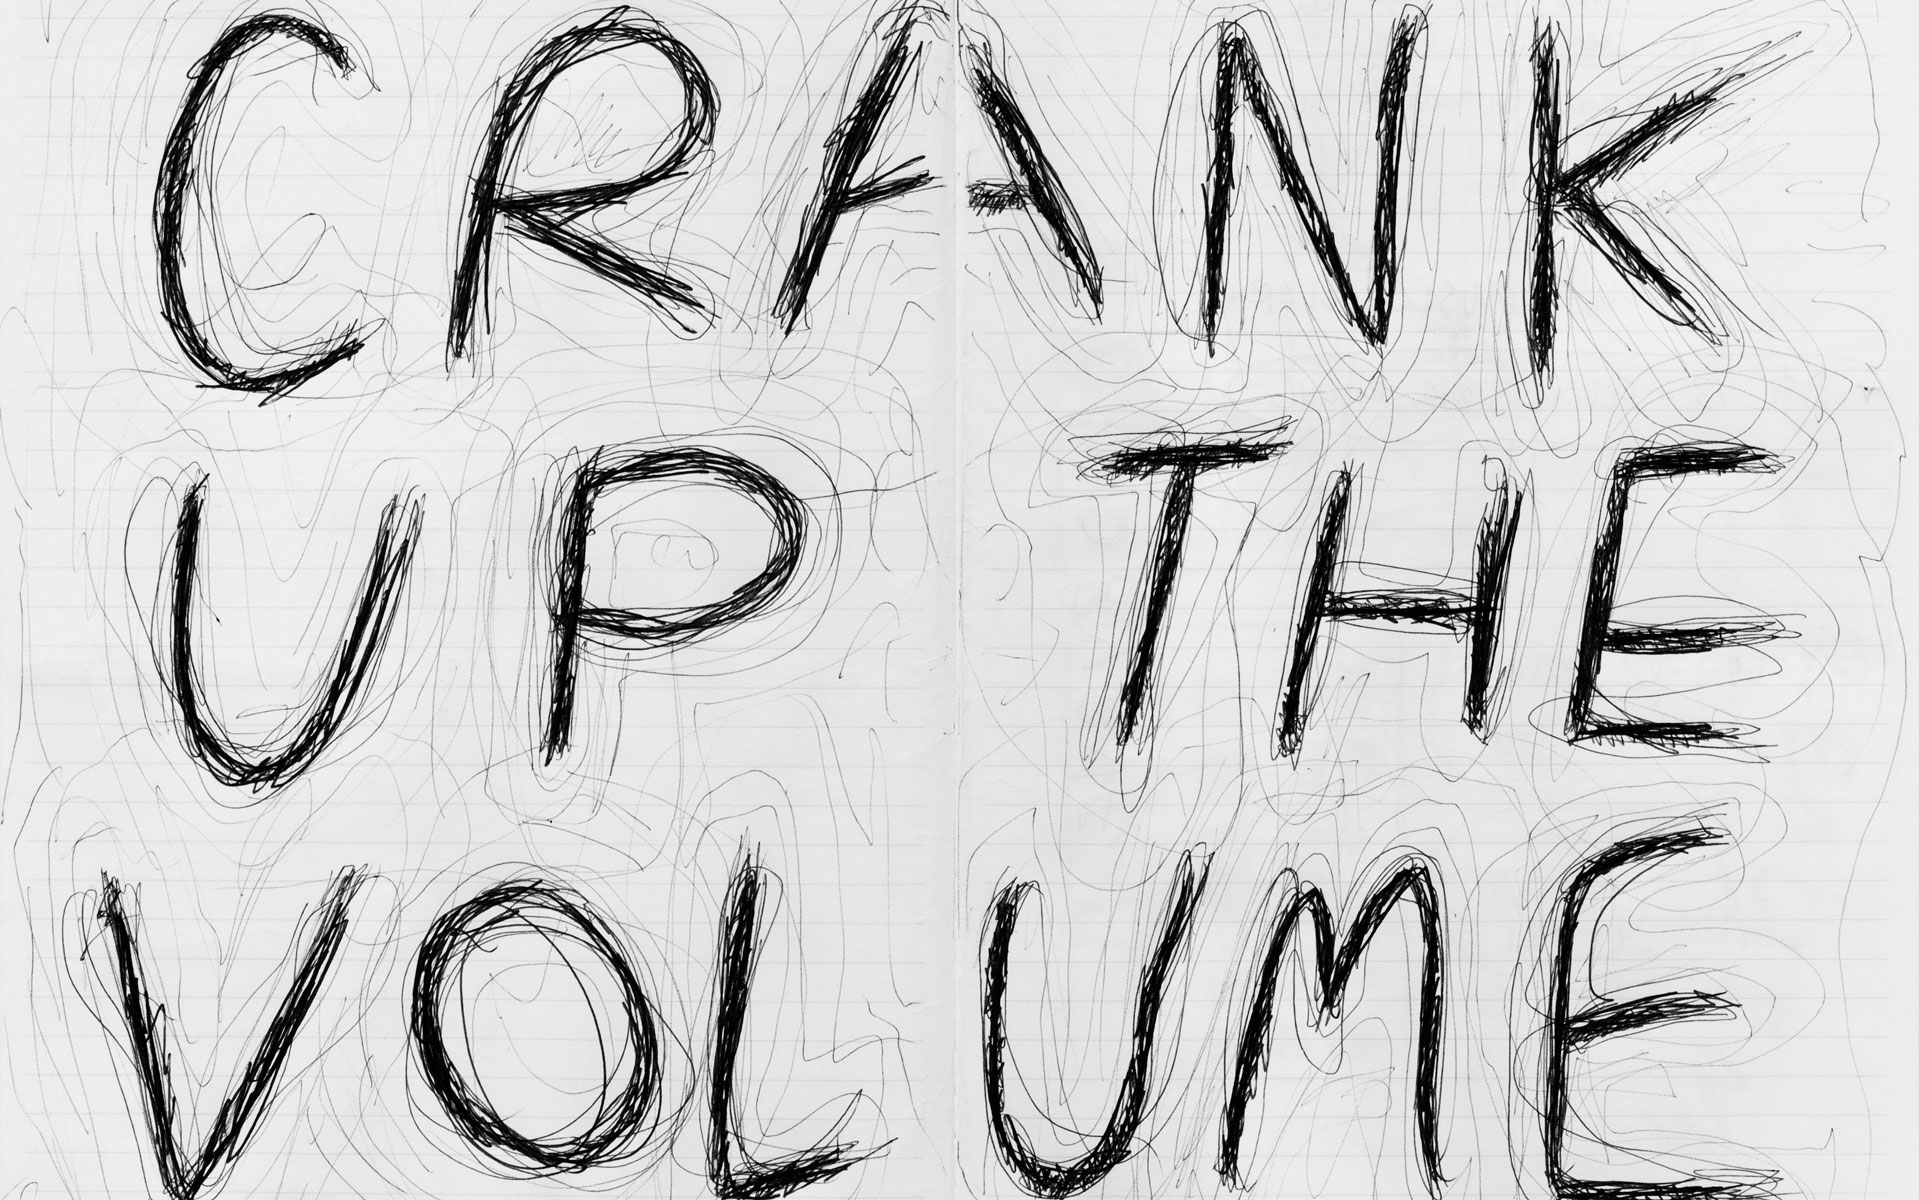 CRANK
UP THE
VOLUME